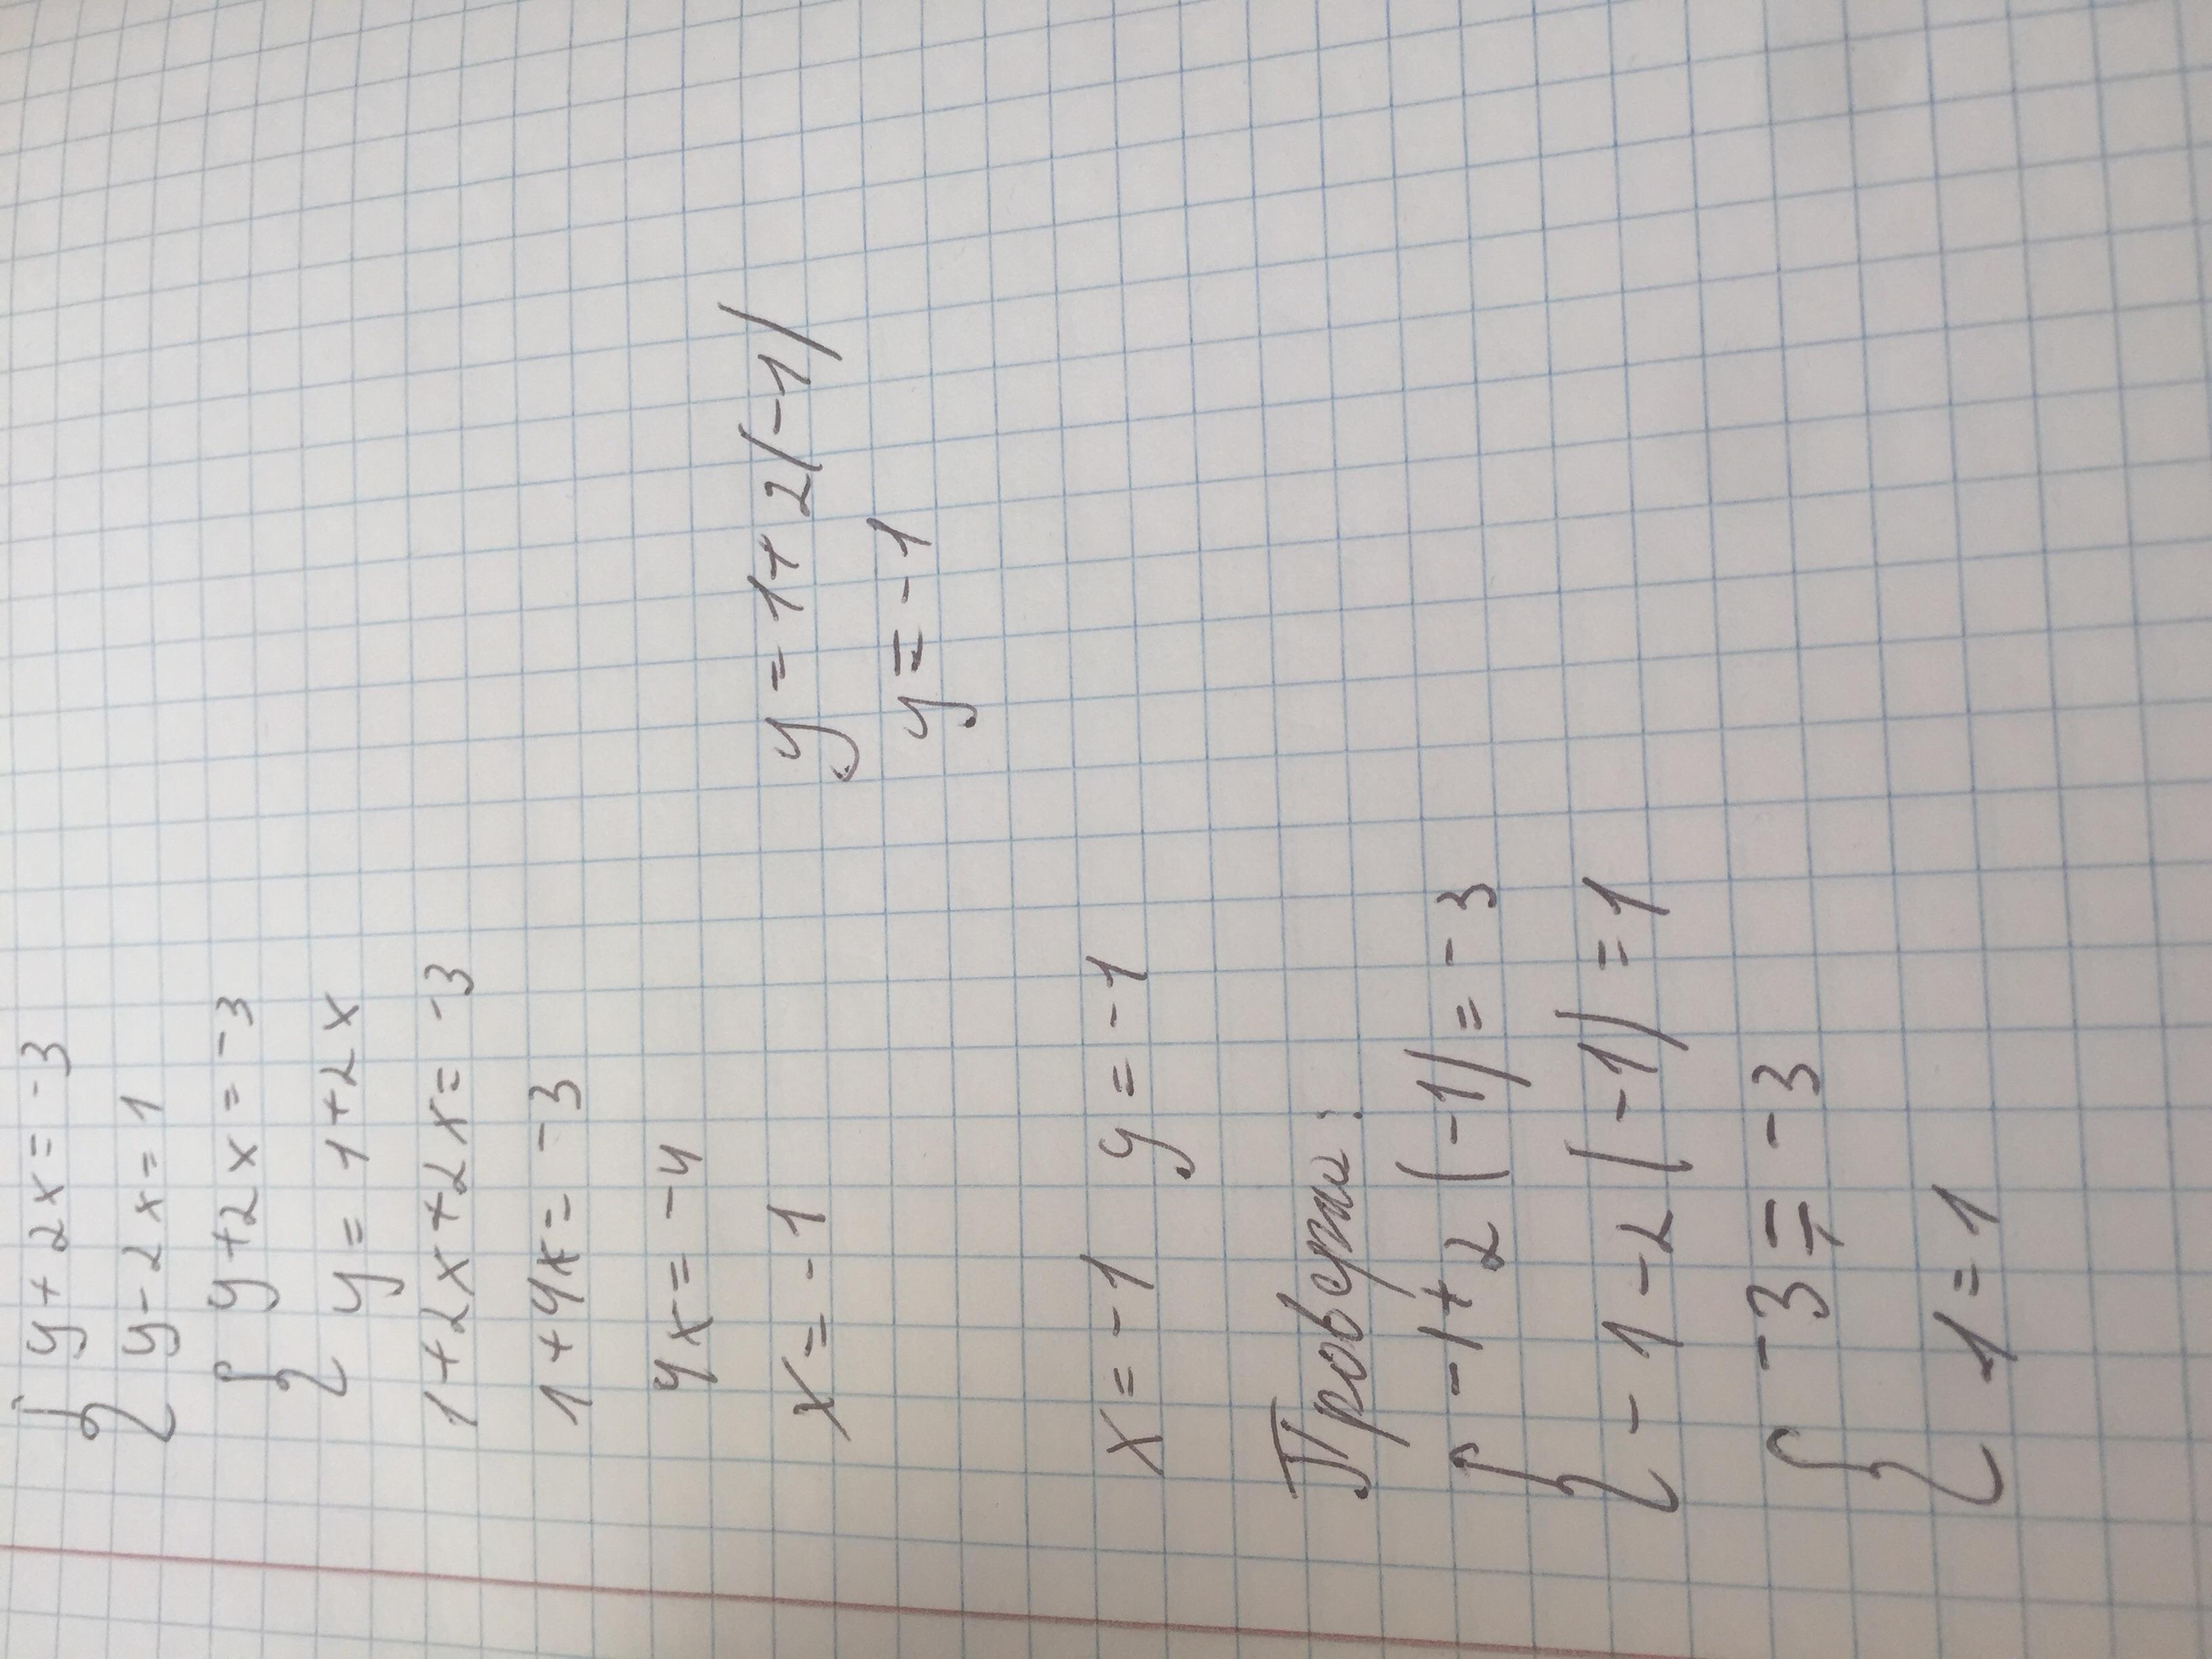 { y + 2x = -3
y - 2x = 1
{ y + 2x = -3
y = 1 + 2x
1 + 2x + 2x = -3
1 + 4x = -3
4x = -4
x = -1
y = 1 + 2(-1)
y = -1
x = -1 y = -1
Проверка:
{ -1 + 2(-1) = -3
-1 - 2(-1) = 1
{ -3 = -3
1 = 1